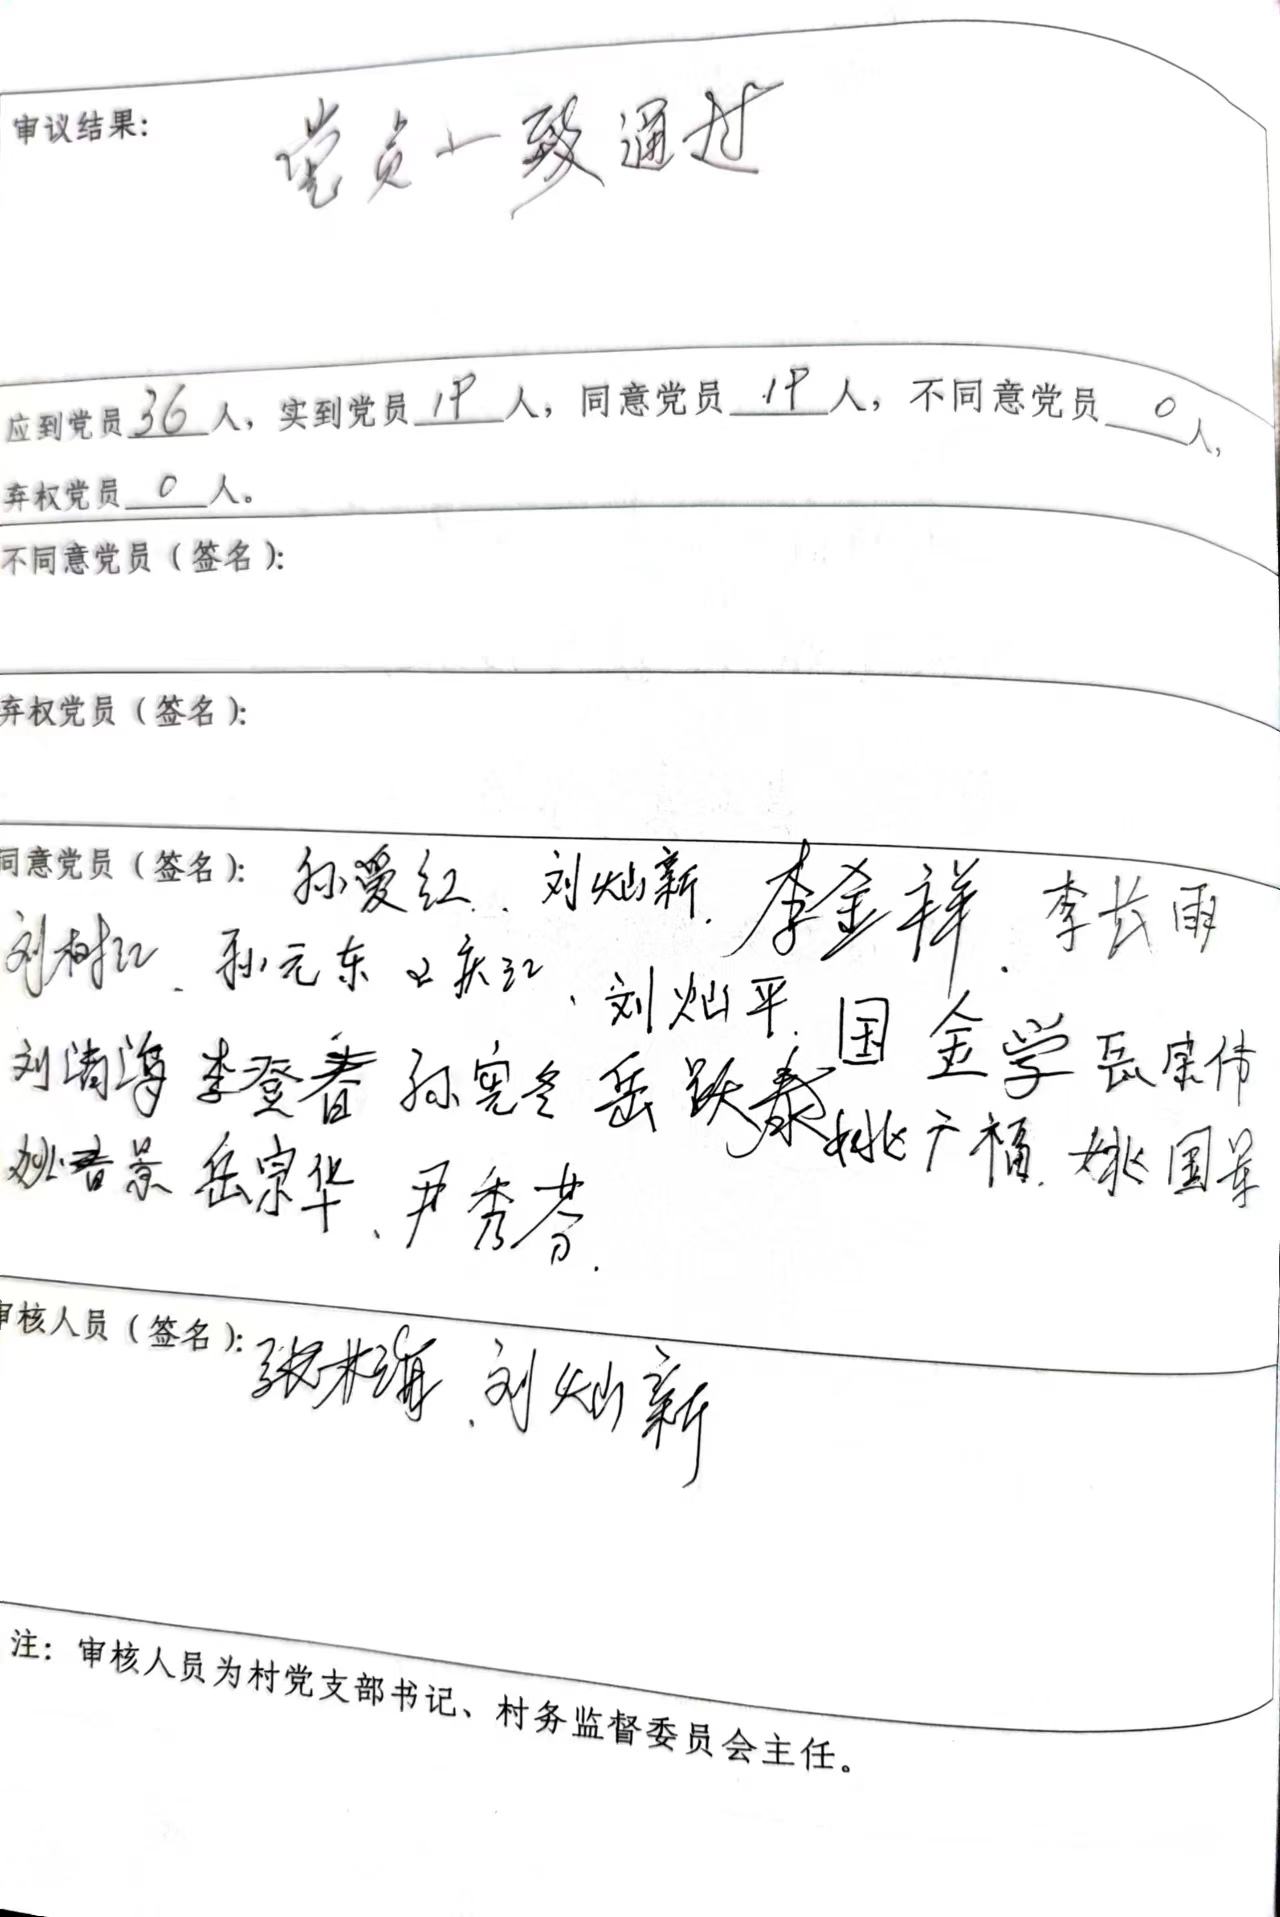 审议结果：
党员一致通过
应到党员36人，实到党员19人，同意党员19人，不同意党员0人，
弃权党员0人。
不同意党员（签名）：
弃权党员（签名）：
同意党员（签名）：孙爱红、刘灿新、李金祥、李长雨
刘树红、孙元东 庆红、刘灿平、国金学 岳宗伟
刘清海 李登春 孙宪冬 岳跃泰 姚广福、姚国军
景 岳宗华、尹秀芬.
审核人员（签名）：张林海、刘灿新
注：审核人员为村党支部书记、村务监督委员会主任。